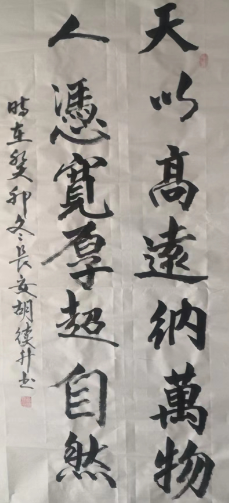 天以高遠納萬物
人憑寬厚超自然
時在癸卯冬長安胡德升书